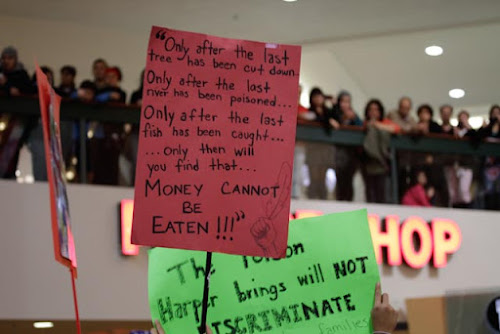 "Only after the last
tree has been cut down
Only after the last
river has been poisoned...
Only after the last
fish has been caught...
...Only then will
you find that...
MONEY CANNOT
BE
EATEN !!!"
SHOP
The Poison
Harper brings will NOT
DISCRIMINATE
families